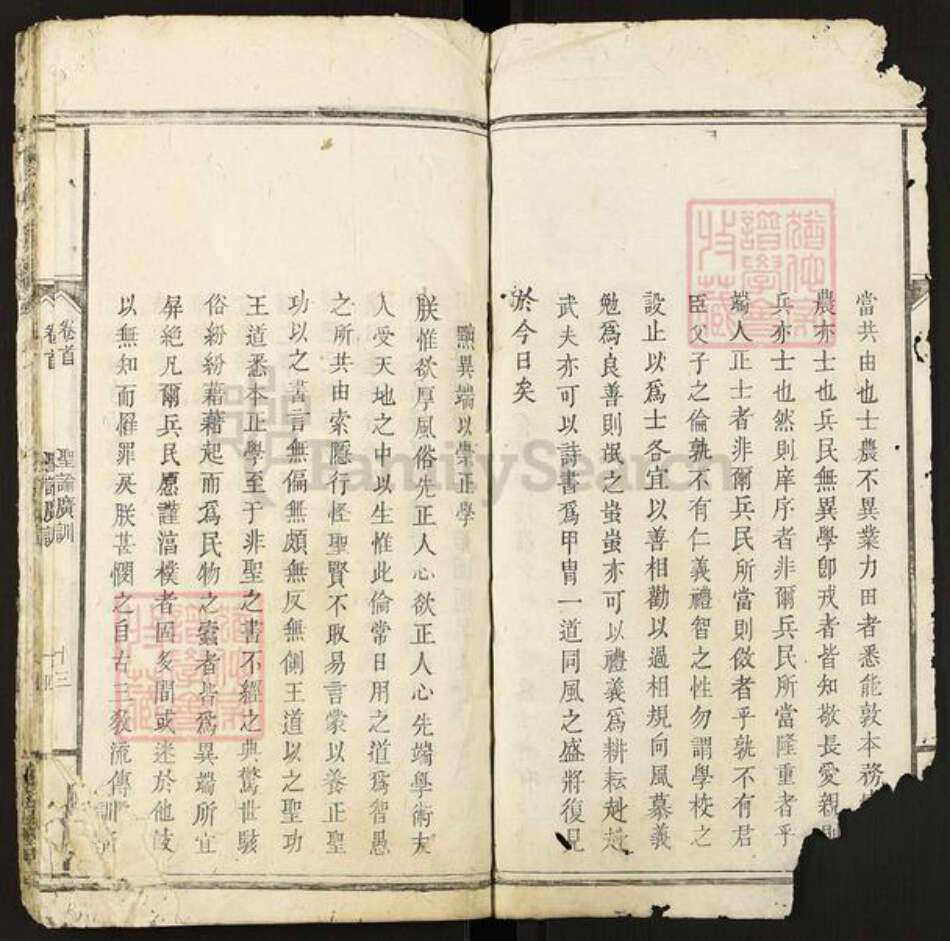 當共由也士農不異業力田者悉能敦本務
農亦士也兵民無異學卽戎者皆知敬長愛親則
兵亦士也然則庠序者非爾兵民所當隆重者乎
端人正士者非爾兵民所當則傚者乎孰不有君
臣父子之倫孰不有仁義禮智之性勿謂學校之
設止以爲士各宜以善相勸以過相規向風慕義
勉爲良善則氓之蚩蚩亦可以禮義爲耕耘赳赳
武夫亦可以詩書爲甲冑一道同風之盛將復見
於今日矣
黜異端以崇正學
朕惟欲厚風俗先正人心欲正人心先端學術夫
人受天地之中以生惟此倫常日用之道爲智愚
之所共由索隱行怪聖賢不取易言蒙以養正聖
功以之書言無偏無頗無反無側王道以之聖功
王道悉本正學至于非聖之書不經之典驚世駭
俗紛紛藉藉起而爲民物之蠹者皆爲異端所宜
屏絕凡爾兵民愿謹淳樸者固多間或迷於他岐
以無知而罹罪戾朕甚憫之自古三敎流傳
卷首
聖諭廣訓
十三
FamilySearch